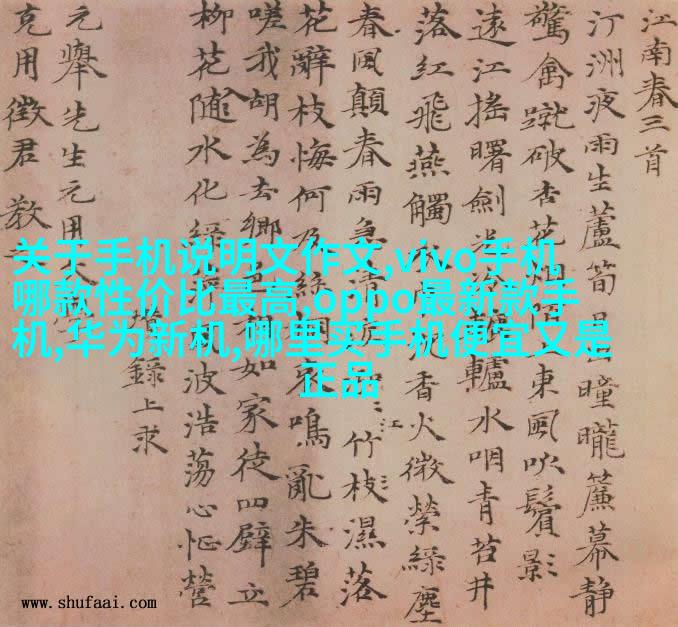 江南春三首
汀洲夜雨生蘆筍日曈曨簾幕靜
驚禽蹴破杏花烟陌上東風吹鬢影
遠江搖曙劍光冷轆轤水咽青苔井
落紅飛燕觸香火微縈綠塵
春風顛春雨急清江竹枝濕落
花辭枝悔何及絲桐哀鳴亂朱碧
嗟我胡為去鄉相如家徒四壁立
柳花隨水化綠波浩蕩心怔營
錄上求
元舉先生元用
克用徵君 教
关于手机说明文作文,vivo手机
哪款性价比最高,oppo最新款手
机,华为新机,哪里买手机便宜又是
正品
www.shufaai.com